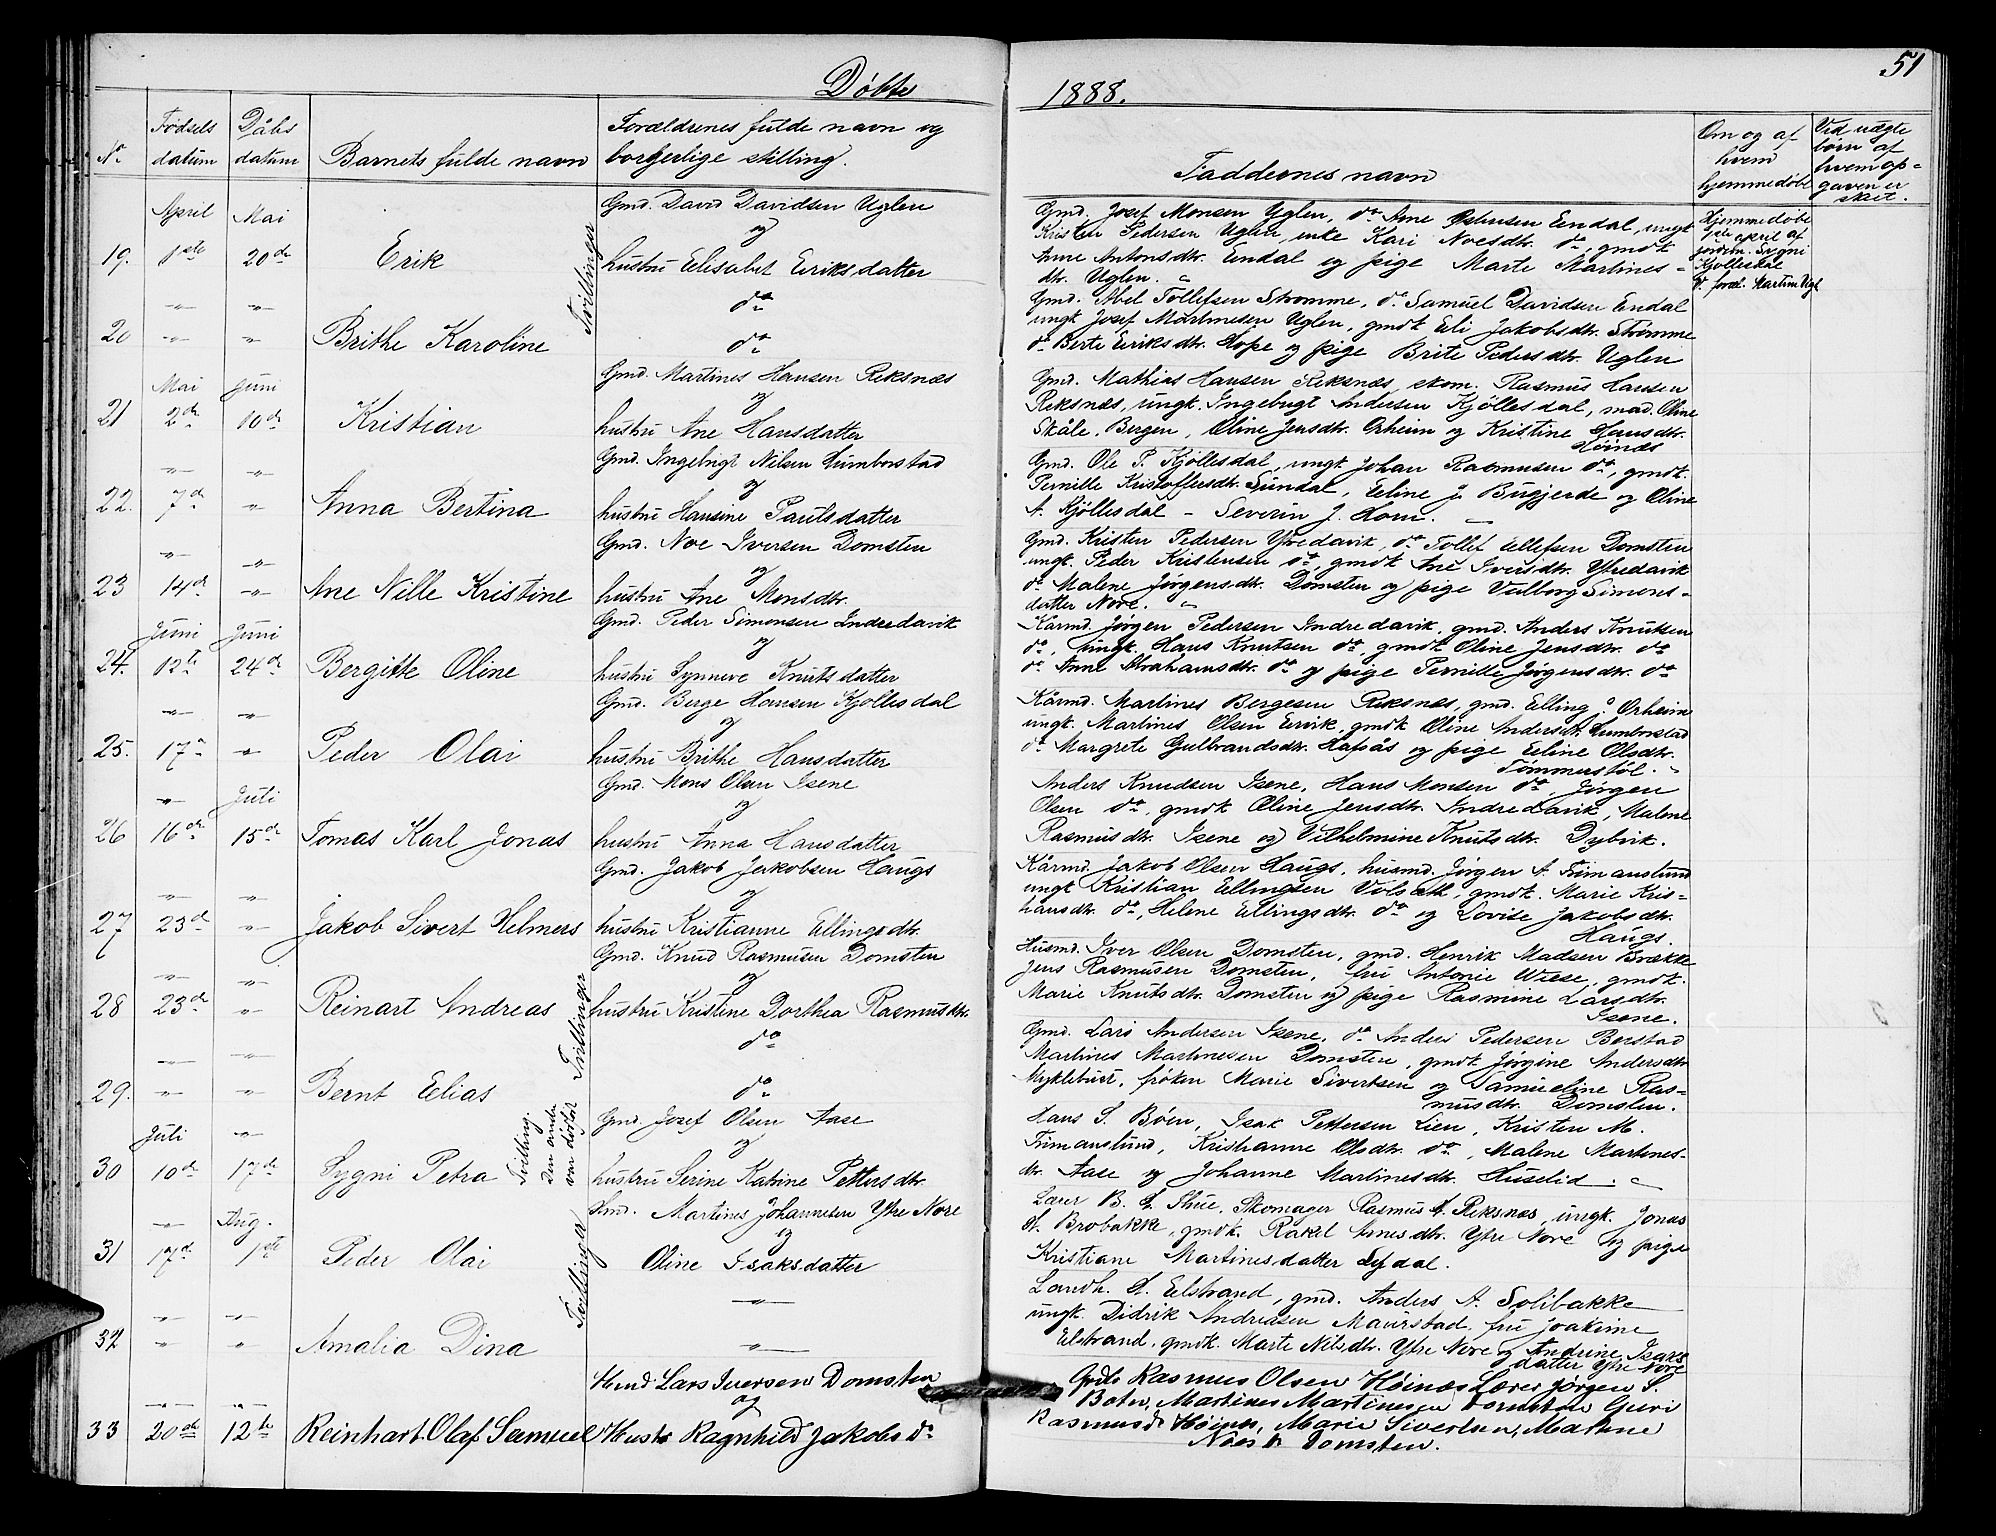 Døbte 1888. 51
No. Fødsels datum Dåbs datum Barnets fulde navn Forældrenes fulde navn og borgerlige stilling. Faddernes navn Om og af hvem hjemmedøbt Ved uægte børn af hvem opgaven er skeet.
April Mai Gmd. David Davidsen Uglen
og
19. 1ste 20de Erik hustru Elisabet Eriksdatter
Tvillinger
20 Brithe Karoline do
do
Gmd. Josef Monsen Uglen, do Arne Endal, ungk
Kristen Pedersen Uglen, enke Kari Noesdtr. do, gmdk
Anne Antonsdtr. Endal og pige Marte Martines-
dtr. Uglen.
Hjemmedøbt
1ste april af
jordm. Sygni
Kjøllesdal
Gmd. Abel Tollefsen Strømme, do Samuel Davidsen Endal
ungk Josef Martinesen Uglen, gmdk Eli Jakobsdtr. Strømme
do Berte Eriksdtr. Hope og pige Brite Pedersdtr. Uglen
Mai Juni Gmd. Martines Hansen Reksnæs
og
21 2de 10de Kristian hustru Ane Hansdatter
Gmd. Mathias Hansen Reksnæs, skom. Rasmus Hansen
Reksnæs, ungk. Ingebrigt Andersen Kjøllesdal, mad. Oline
Skåle, Bergen, Oline Jensdtr. Orheim og Kristine Hansdtr.
Gmd. Ingebrigt Nilsen Humborstad
og
22. 7de Anna Bertina hustru Hansine Paulsdatter
Gmd. Ole P. Kjøllesdal, ungk Johan Rasmusen do, gmdk.
Pernille Kristoffersdtr. Sundal, Eline J. Bugjerde og Oline
A. Kjøllesdal – Severin J. Horn.
Gmd. Noe Iversen Domsten
og
23 14de Ane Nille Kristine hustru Ane Monsdtr.
Gmd. Kristen Pedersen Ytredavik, do Tollef Ellefsen Domsten
ungk. Peder Kristensen do, gmdk Ane Iversdtr. Ytredavik
do Malene Jørgensdtr. Domsten og pige Valborg Simons-
datter Nore.
Juni Juni Gmd. Peder Simonsen Indredavik
og
24. 12te 24de Bergitte Oline hustru Synneve Knutsdatter
Kårmd. Jørgen Pedersen Indredavik, gmd. Anders Knutsen
do, ungk. Hans Knutsen do, gmdk Oline Jensdtr. do
do Anne Abrahamsdtr. do og pige Pernille Jørgensdtr. do
Gmd. Børge Hansen Kjøllesdal
og
25. 17de Peder Olai hustru Brithe Hansdatter
Kårmd. Martines Bergesen Reksnæs, gmd. Elling O. Orheim
ungk. Martines Olsen Ervik, gmdk Oline Andersdtr. Humborstad
do Margrete Gulbrandsdtr. Hafsås og pige Eline Olsdtr.
Tømmerstøl.
Juli Gmd. Mons Olsen Isene
og
26 16de 15de Tomas Karl Jonas hustru Anna Hansdatter
Anders Knudsen Isene, Hans Monsen do, Jørgen
Olsen do, gmdk Oline Jensdtr. Indredavik, Malene
Rasmusdtr. Isene og Vilhelmine Knutsdtr. Dybvik.
Gmd. Jakob Jakobsen Haugs
og
27 23de Jakob Sivert Helmers hustru Kristianne Ellingsdtr.
Kårmd. Jakob Olsen Haugs, husmd. Jørgen A. Frimanslund
ungk Kristian Ellingsen Volsæth, gmdk. Marie Kris-
tiansdtr. do, Helene Ellingsdtr. do og Lovise Jakobsdtr.
Haugs.
Gmd. Knud Rasmusen Domsten
og
28 23de Reinart Andreas hustru Kristine Dorthea Rasmusdtr.
Tvillinger
Husmd. Iver Olsen Domsten, gmd. Henrik Madsen Brække
Jens Rasmusen Domsten, fru Antonie Wiese, gmdk.
Marie Knutsdtr. Domsten og pige Rasmine Larsdtr.
Isene.
do
29. Bernt Elias do
Gmd. Lars Andersen Isene, do Anders Pedersen Berstad
Martines Martinesen Domsten, gmdk Jørgine Andersdtr
Myklebust, frøken Marie Sivertsen og Samueline Ras-
musdtr. Domsten.
Juli Gmd. Josef Olsen Aase
og
30 10de 17de Sygni Petra hustru Serine Katrine Pettersdtr.
Tvilling.
Den anden
var dødfød
Hans S. Bøen, Isak Pettersen Lien, Kristen M.
Frimanslund, Kristianne Olsdtr. do, Malene Martines-
dtr. Aase og Johanne Martinesdtr. Huselid.
Aug. Gmd. Martines Johannesen Ytre Nore
og
31 17de 1ste Peder Olai Oline Isaksdatter
Tvillinger
Lærer B. G. Skue, Skomager Rasmus A. Reksnæs, ungk. Jonas
A. Brobakke, gmdk. Rakel Arnesdtr. Ytre Nore og pige
Kristiane Martinesdatter Lefdal.
32 Amalia Dina
Landh. A. Elstrand, gmd. Anders A. Solibakke
ungk. Didrik Andreasen Maurstad, fru Joakime
Elstrand, gmdk. Marte Nilsdtr. Ytre Nore og Andrine Isaks
datter Ytre Nore
Hmd Lars Iversen Domsten
og
33 20de 12te Reinhart Olaf Samuel Hustr Ragnhild Jakobsd.
Gmd Rasmus Olsen Høinæs Lærer Jørgen S.
Boten, Martines Martinesen Domsten Guri
Rasmusdt Høinæs, Marie Sivertsen, Martine
Noesdt Domsten.